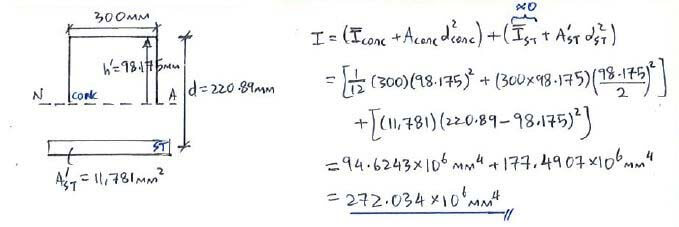 300MM
h'=98.175MM
d=220.89MM
N CONC A
ST
A'ST=11,781MM²
≈0
I=(Īconc+Aconc d²conc)+(ĪST+A'ST d²ST)
=[1/12(300)(98.175)²+(300×98.175)(98.175/2)²]
+[(11,781)(220.89-98.175)²]
=94.6243×10⁶MM⁴+177.4907×10⁶MM⁴
=272.034×10⁶MM⁴